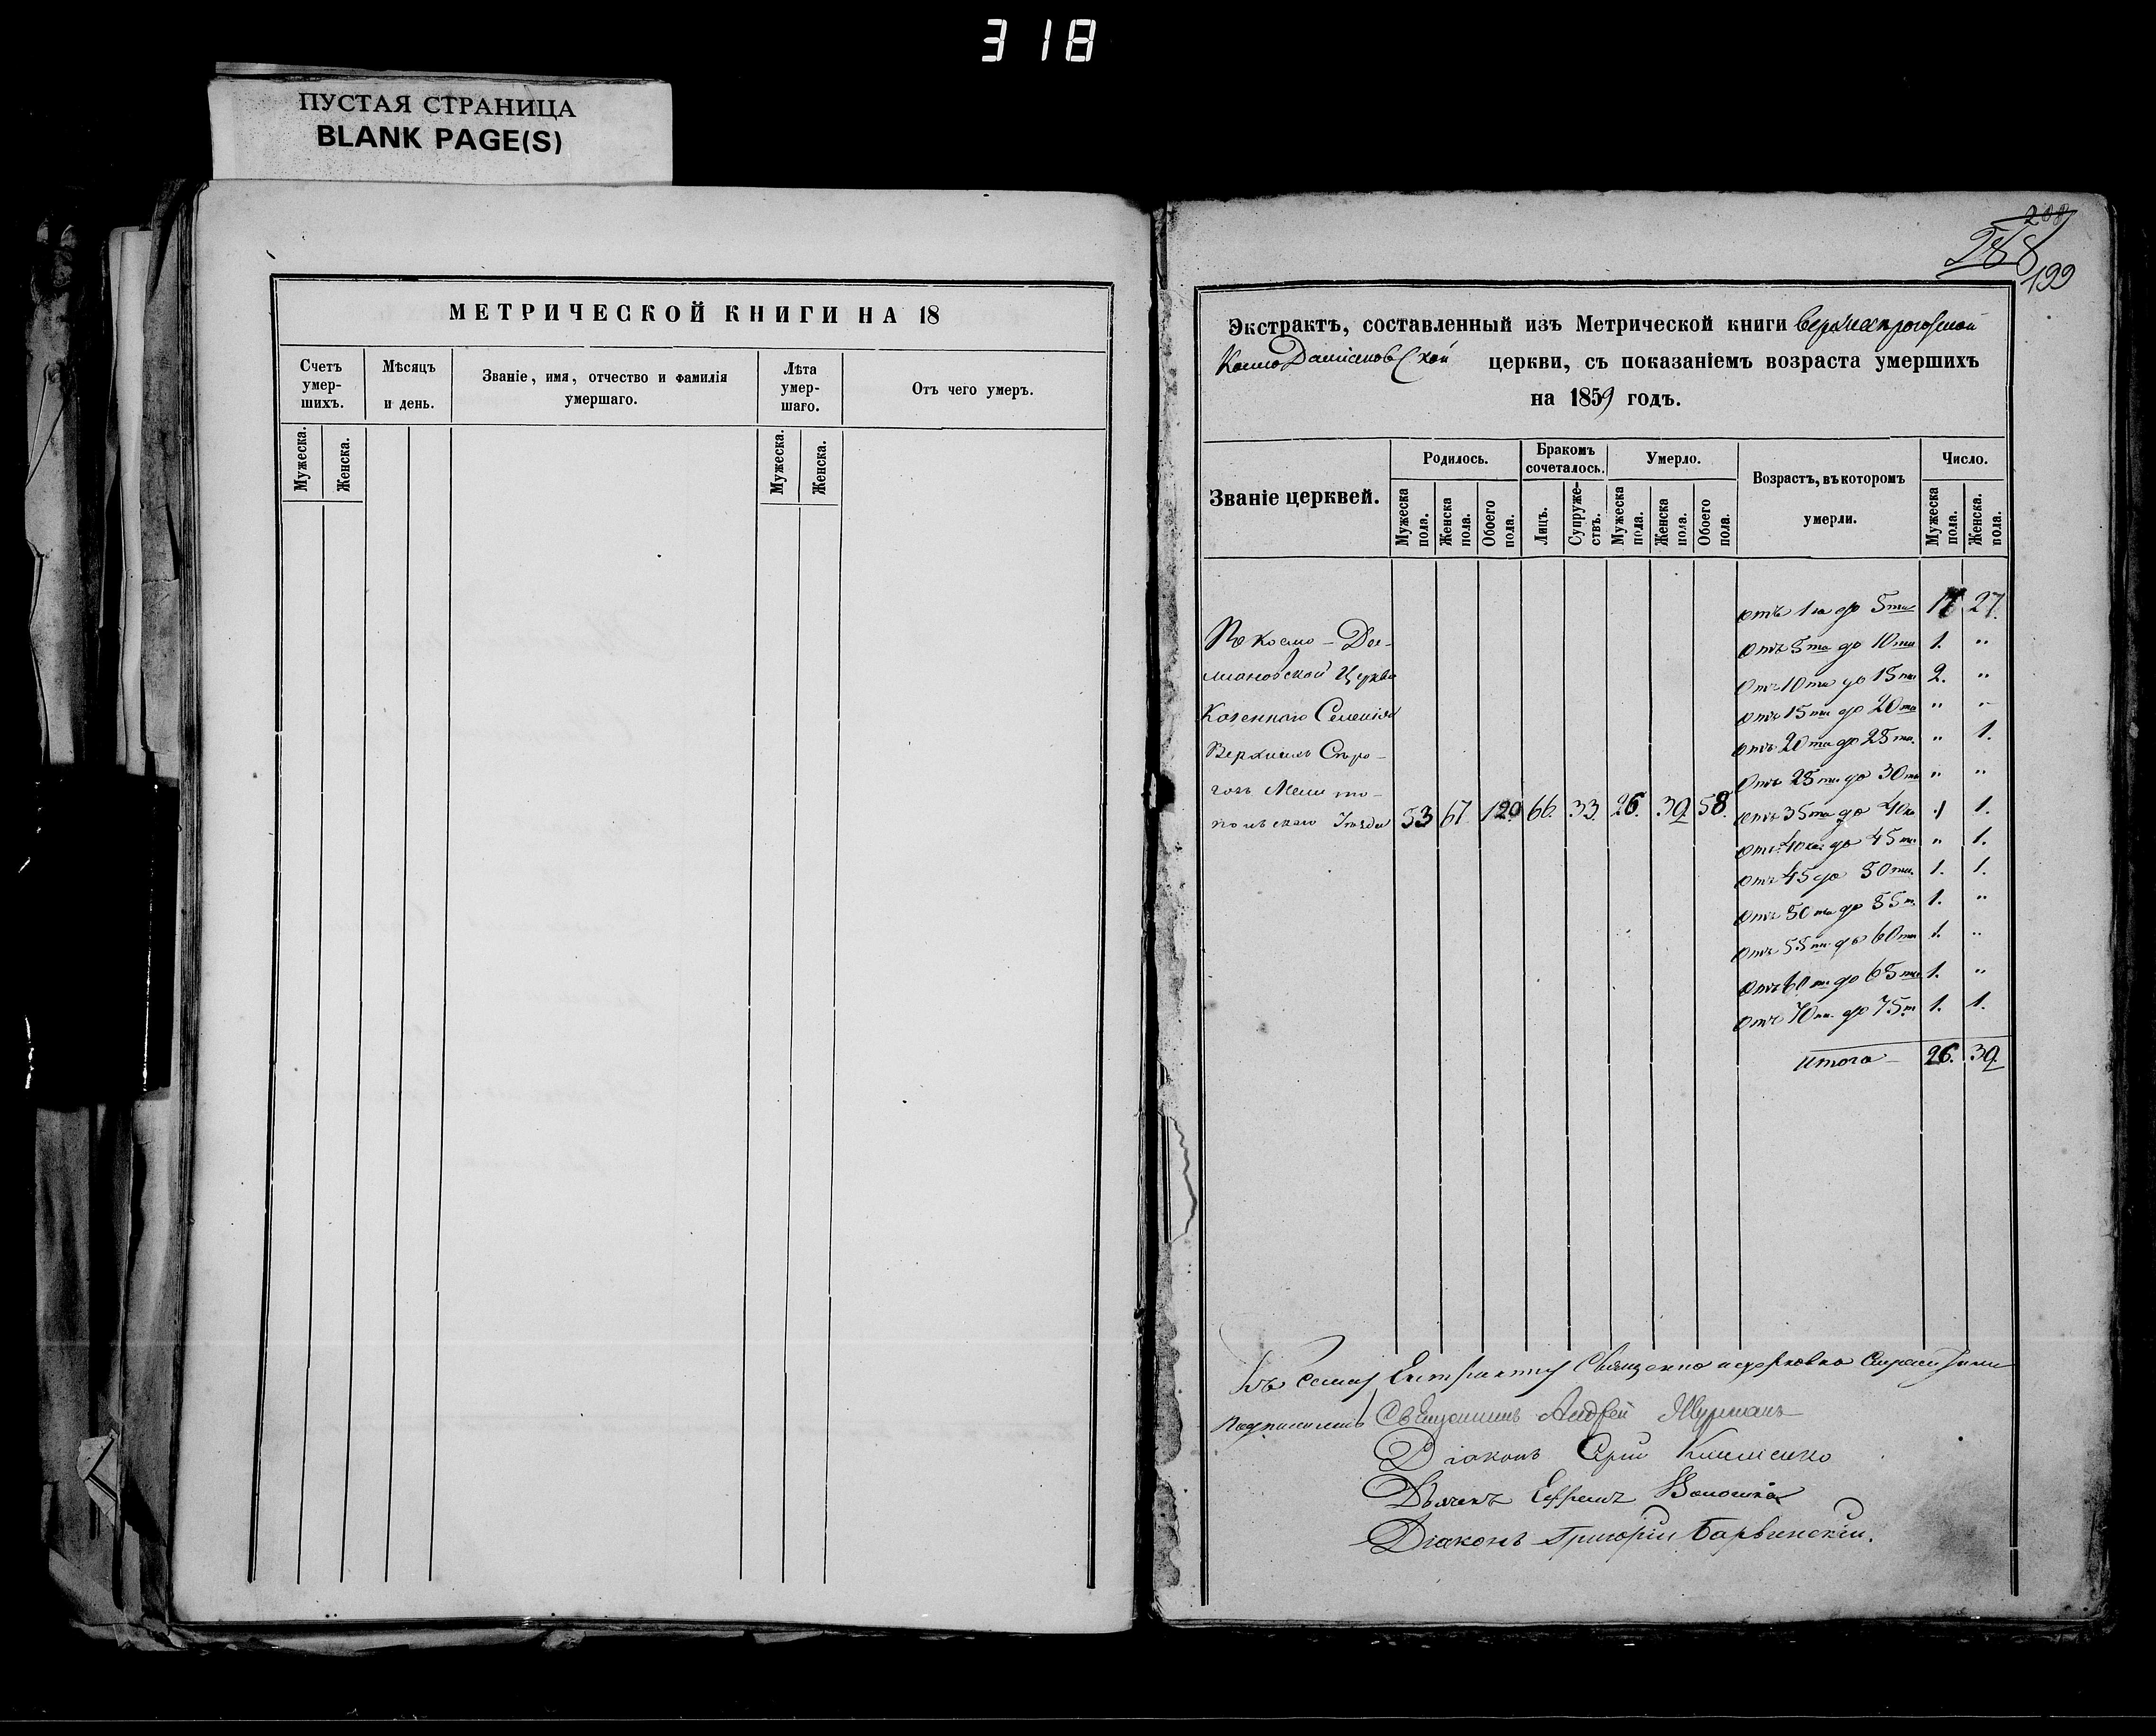 318
ПУСТАЯ СТРАНИЦА
BLANK PAGE(S)
МЕТРИЧЕСКОЙ КНИГИ НА 18
Счетъ умер-шихъ.
Мѣсяцъ и день.
Званіе, имя, отчество и фамилія умершаго.
Лѣта умер-шаго.
Отъ чего умеръ.
Мужеска.
Женска.
Мужеска.
Женска.
208
199
Экстрактъ, составленный изъ Метрической книги
Космо Даміановской церкви, съ показаніемъ возраста умершихъ
на 1859 годъ.
Званіе церквей.
Родилось.
Бракомъ сочеталось.
Умерло.
Возрастъ, въ которомъ умерли.
Число.
Мужеска пола.
Женска пола.
Обоего пола.
Лицъ.
Супруже-ствъ.
Мужеска пола.
Женска пола.
Обоего пола.
Мужеска пола.
Женска. пола.
отъ 1го до 5ти 17 27.
По Космо-Да-
отъ 5ти до 10ти 1. "
міановской Церкви
отъ 10ти до 15ти 2. "
Казеннаго Селенія
отъ 15ти до 20ти " "
отъ 20ти до 25ти. " 1.
Верхнихъ Сѣро-
отъ 25ти до 30ти " "
гозъ Мелито-
польскаго Уѣзда 53 67 120 66. 33. 26. 32 58.
отъ 35ти до 40ка 1 1.
отъ 40ка до 45ти " 1.
отъ 45 до 50ти. 1. 1.
отъ 50ти до 55т. 1. "
отъ 55ти до 60ти 1. "
отъ 60ти до 65ти 1. "
отъ 70ти. до 75т. 1. 1.
итого 26. 32
Къ сему Екстракту Священно и церковно служители
подписались Священникъ Андрей
Діаконъ Клименко
Дьячекъ Ефремъ Волошко
Діаконъ Григорій Барвинскій.